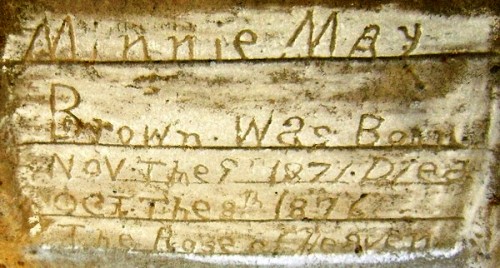 Minnie May
Brown. Was Born
Nov. The 9th 1871. Died
Oct The 8th 1876
The Rose of Heaven